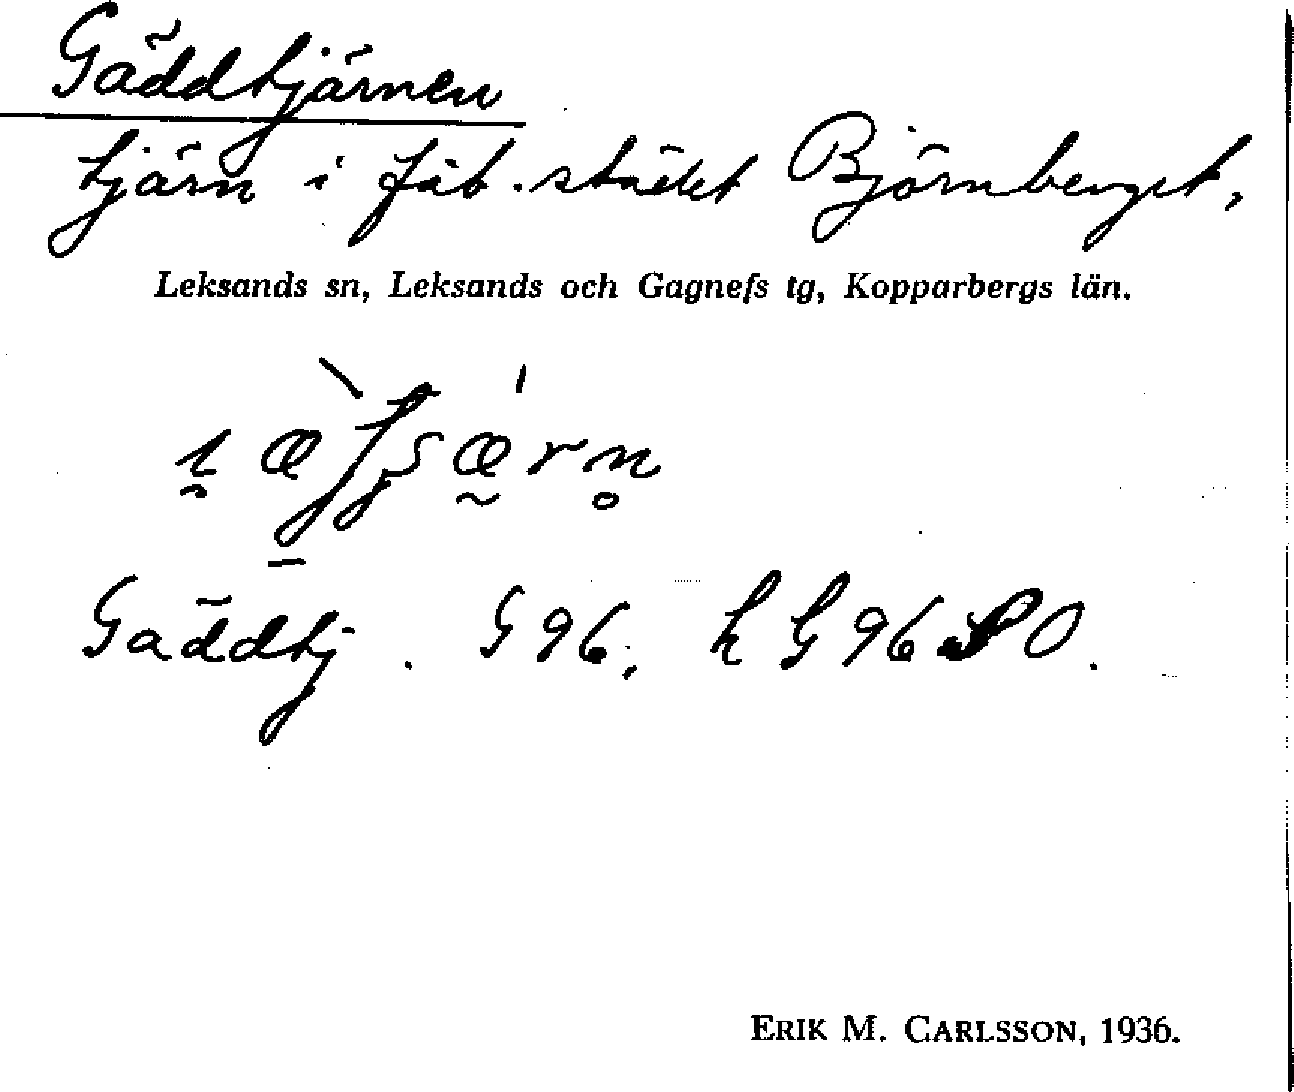 Gäddtjärnen
tjärn i fäb.stället Björnberget,
Leksands sn, Leksands och Gagnefs tg, Kopparbergs län.
Gäddtj. G 96; h G 96 SO.
ERIK M. CARLSSON, 1936.